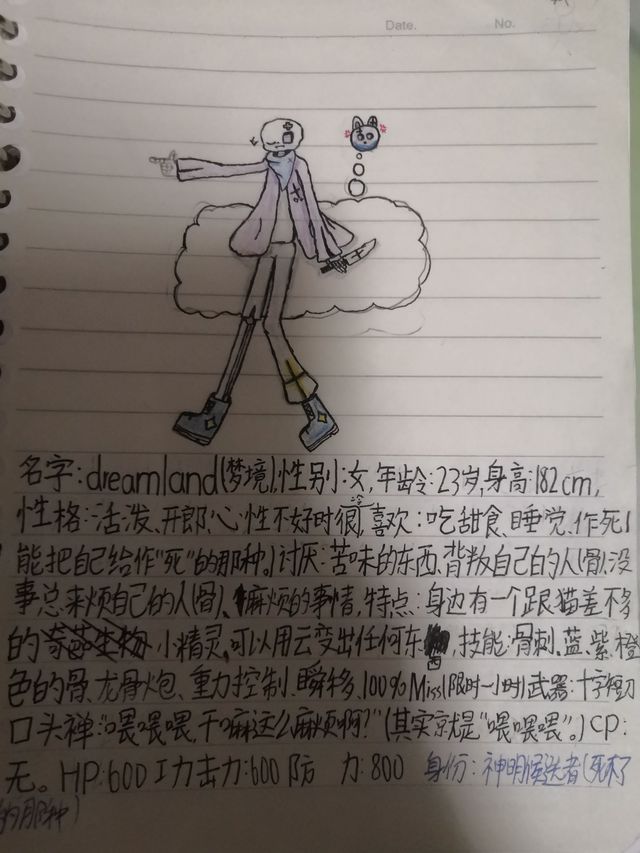 Date. No.
名字:dreamland(梦境),性别:女,年龄:23岁,身高:182cm,
性格:活泼、开郎、心性不好时很冷,喜欢:吃甜食、睡觉、作死(
能把自己给作“死”的那种。)讨厌:苦味的东西、背叛自己的人(骨)、没
事总来烦自己的人(骨)、麻烦的事情,特点:身边有一个跟猫差不多
的小精灵,可以用云变出任何东西,技能:骨刺、蓝、紫、橙
色的骨、龙骨炮、重力控制、瞬移、100%Miss(限时一小时)武器:十字短刀
口头禅:“喂喂喂,干嘛这么麻烦啊?”(其实就是“喂喂喂”。)CP:
无。HP:600 工力击力:600 防 力:800 身份:神明候选者(死不了
的那种)